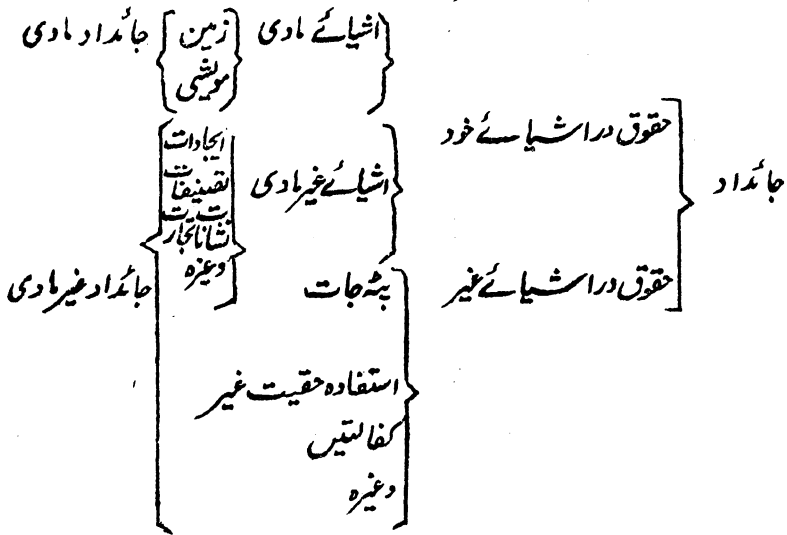 جائداد
حقوق در اشیائے خود
حقوق در اشیائے غیر
اشیائے مادی
زمین
مویشی
جائداد مادی
اشیائے غیر مادی
ایجادات
تصنیفات
نشانات تجارت
وغیرہ
پٹہ جات
استفادہ حقیت غیر
کفالتیں
وغیرہ
جائداد غیر مادی